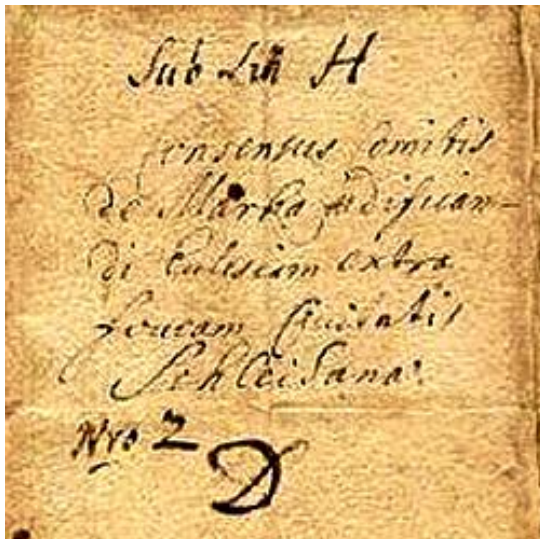 Sub Litt H
Consensus Comitis
de Marka ædifican-
di Eclesiam extra
foveam Civitatis
Schleidanæ.
Nro 2
D